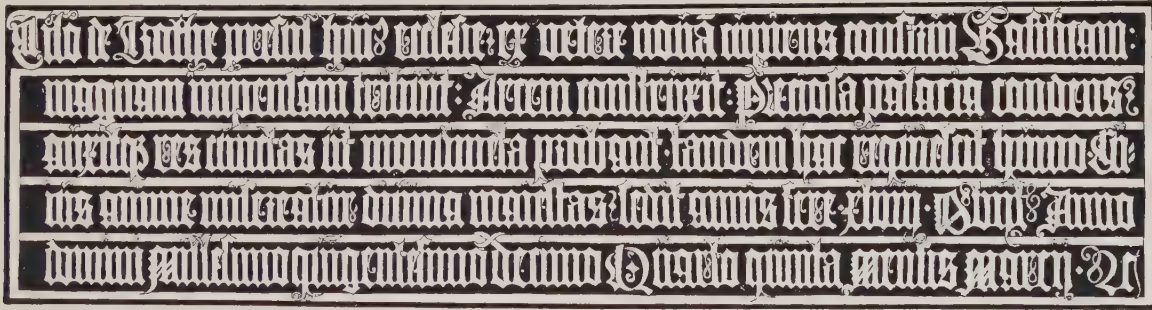 Tilo de Trothe presul hui9 ecclesie: ex vetere novā construi Basilicam:
magnam impensam tribuit: Arcem construxit: palacia condens:
res civitas ut monumenta probant: tandem hac requiescit humo Cu-
ius anime misereatur divina maiestas: sedit annis fere xlviij. Obijt Anno
domini Millesimoquīgentesimodecimo Quarto quinta Mensis Marcij.